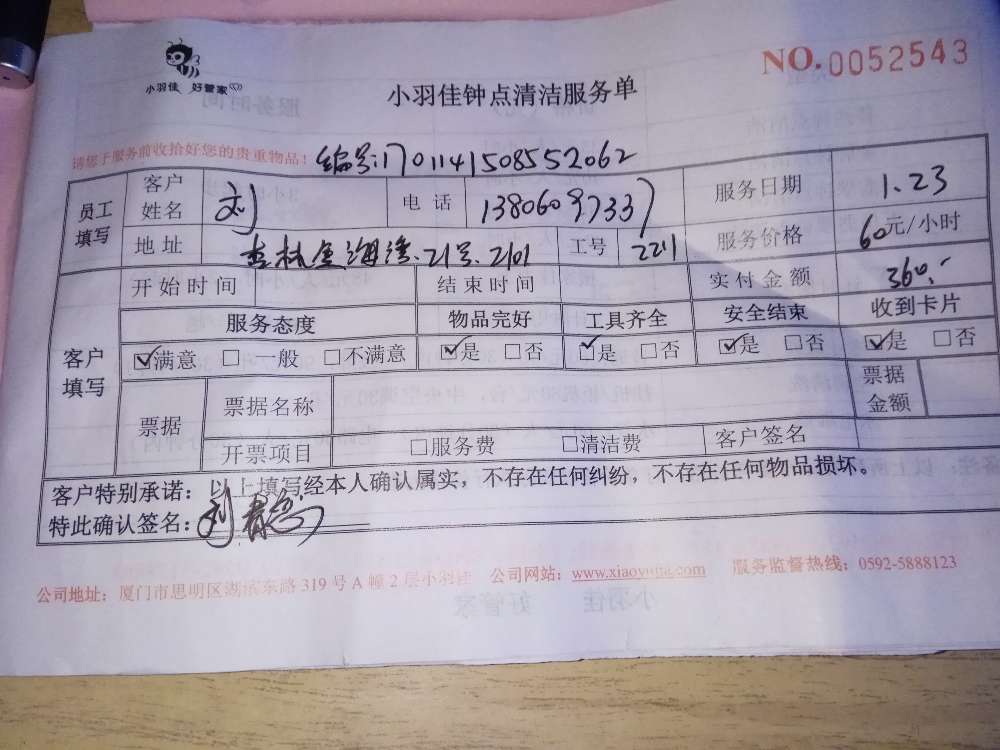 小羽佳 好管家
NO.0052543
小羽佳钟点清洁服务单
请您于服务前收拾好您的贵重物品！ 编号:1701141508552062
员工填写 客户姓名 刘 电话 13806097337 服务日期 1.23
地址 杏林 海湾.21号.2101 工号 2211 服务价格 60元/小时
开始时间 结束时间 实付金额 360.-
客户填写 服务态度 物品完好 工具齐全 安全结束 收到卡片
☑满意 □一般 □不满意 ☑是 □否 ☑是 □否 ☑是 □否 ☑是 □否
票据 票据名称 票据金额
开票项目 □服务费 □清洁费 客户签名
客户特别承诺：以上填写经本人确认属实，不存在任何纠纷，不存在任何物品损坏。
特此确认签名：刘
公司地址：厦门市思明区湖滨东路 319 号 A 幢 2 层小羽佳 公司网站：www.xiaoyujia.com 服务监督热线：0592-5888123